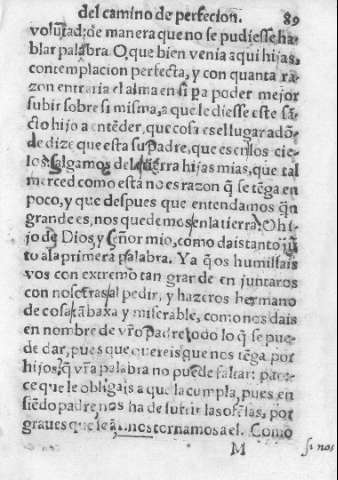 del camino de perfecion. 89
volũtad; de manera que no se pudiesse ha-
blar palabra. O, que bien venia aqui hijas,
contemplacion perfecta, y con quanta ra-
zon entraria el alma en si pa poder mejor
subir sobre si misma, a que le diesse este sã-
cto hijo a entẽder, que cosa es el lugar adõ-
de dize que esta su Padre, que es en los cie-
los. Salgamos de la tierra hijas mias, que tal
merced como esta no es razon q̃ se tẽga en
poco, y que despues que entendamos quã
grande es, nos quedemos en la tierra. O hi-
jo de Dios y Señor mio, como dais tanto jũ-
to a la primera palabra. Ya q̃ os humillais
vos con extremo tan grande en juntaros
con nosotras al pedir, y hazeros hermano
de cosa tã baxa y miserable, como nos dais
en nombre de vr̃o Padre todo lo q̃ se pue-
de dar, pues que quereis que nos tẽga por
hijos, q̃ vr̃a palabra no puede faltar: pare-
ce que le obligais a que la cumpla, pues en
siẽdo padre, nos ha de sufrir las ofẽsas, por
graues que seã, nos tornamos a el. Como
M si nos